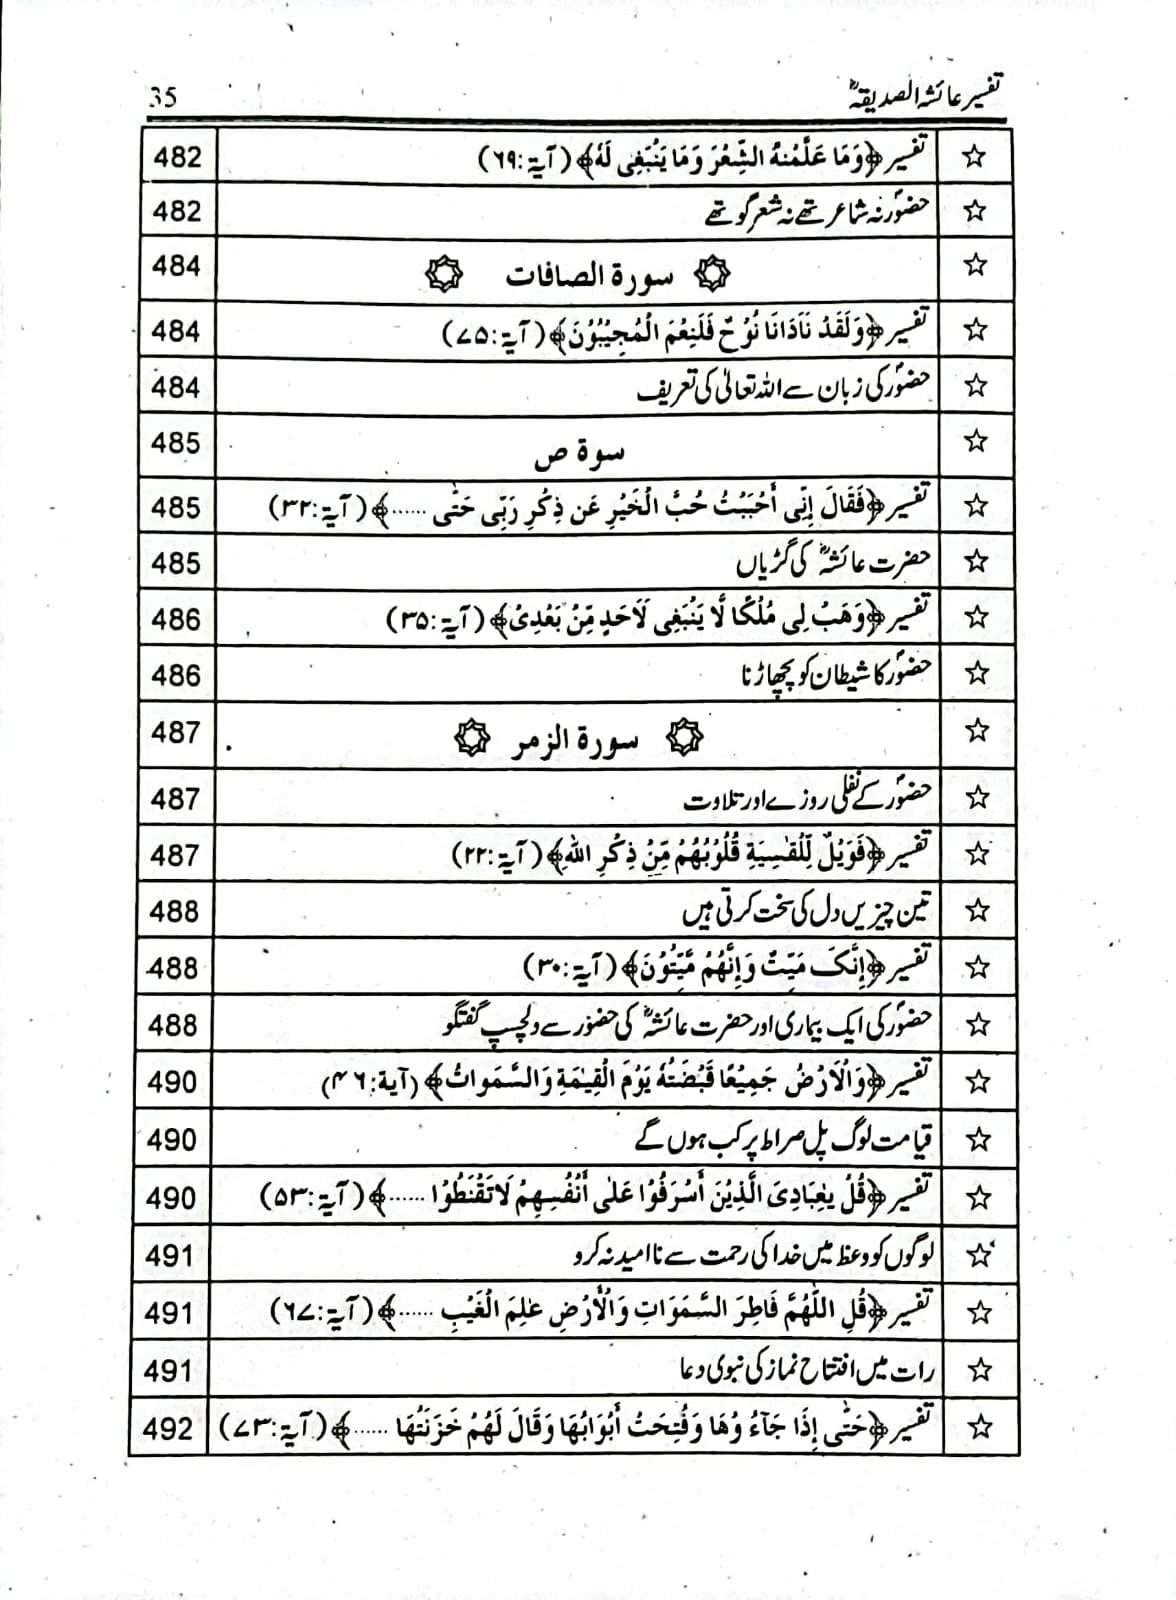 تفسیر عائشہ الصدیقہؓ 35
☆ تفسیر ﴿وَمَا عَلَّمْنٰهُ الشِّعْرَ وَمَا يَنْبَغِى لَهٗ﴾ (آیۃ:۶۹) 482
☆ حضورؐ نہ شاعر تھے نہ شعر گو تھے 482
☆ سورة الصافات 484
☆ تفسیر ﴿وَلَقَدْ نَادَانَا نُوْحٌ فَلَنِعْمَ الْمُجِيْبُوْنَ﴾ (آیۃ:۷۵) 484
☆ حضورؐ کی زبان سے اللہ تعالیٰ کی تعریف 484
☆ سوة ص 485
☆ تفسیر ﴿فَقَالَ اِنِّى أَحْبَبْتُ حُبَّ الْخَيْرِ عَن ذِكْرِ رَبِّى حَتّٰى ......﴾ (آیۃ:۳۲) 485
☆ حضرت عائشہؓ کی گڑیاں 485
☆ تفسیر ﴿وَهَبْ لِى مُلْكًا لَّا يَنْبَغِى لَاَحَدٍ مِّنْ بَعْدِىْ﴾ (آیۃ:۳۵) 486
☆ حضورؐ کا شیطان کو پچھاڑنا 486
☆ سورة الزمر 487
☆ حضورؐ کے نفلی روزے اور تلاوت 487
☆ تفسیر ﴿فَوَيْلٌ لِّلْقٰسِيَةِ قُلُوْبُهُمْ مِّنْ ذِكْرِ اللّٰهِ﴾ (آیۃ:۲۲) 487
☆ تین چیزیں دل کی سخت کرتی ہیں 488
☆ تفسیر ﴿اِنَّكَ مَيِّتٌ وَاِنَّهُمْ مَّيِّتُوْنَ﴾ (آیۃ:۳۰) 488
☆ حضورؐ کی ایک بیماری اور حضرت عائشہؓ کی حضورؐ سے دلچسپ گفتگو 488
☆ تفسیر ﴿وَالْاَرْضُ جَمِيْعًا قَبْضَتُهٗ يَوْمَ الْقِيٰمَةِ وَالسَّمَوَاتُ﴾ (آیۃ:۴۶) 490
☆ قیامت لوگ پل صراط پر کب ہوں گے 490
☆ تفسیر ﴿قُلْ يٰعِبَادِىَ الَّذِيْنَ أَسْرَفُوْا عَلٰى أَنْفُسِهِمْ لَا تَقْنَطُوْا ......﴾ (آیۃ:۵۳) 490
☆ لوگوں کو وعظ میں خدا کی رحمت سے نا امید نہ کرو 491
☆ تفسیر ﴿قُلِ اللّٰهُمَّ فَاطِرَ السَّمَوَاتِ وَالْأَرْضِ عٰلِمَ الْغَيْبِ ......﴾ (آیۃ:۶۷) 491
☆ رات میں افتتاح نماز کی نبوی دعا 491
☆ تفسیر ﴿حَتّٰى اِذَا جَآءُ وْهَا وَفُتِحَتْ أَبْوَابُهَا وَقَالَ لَهُمْ خَزَنَتُهَا ......﴾ (آیۃ:۷۳) 492